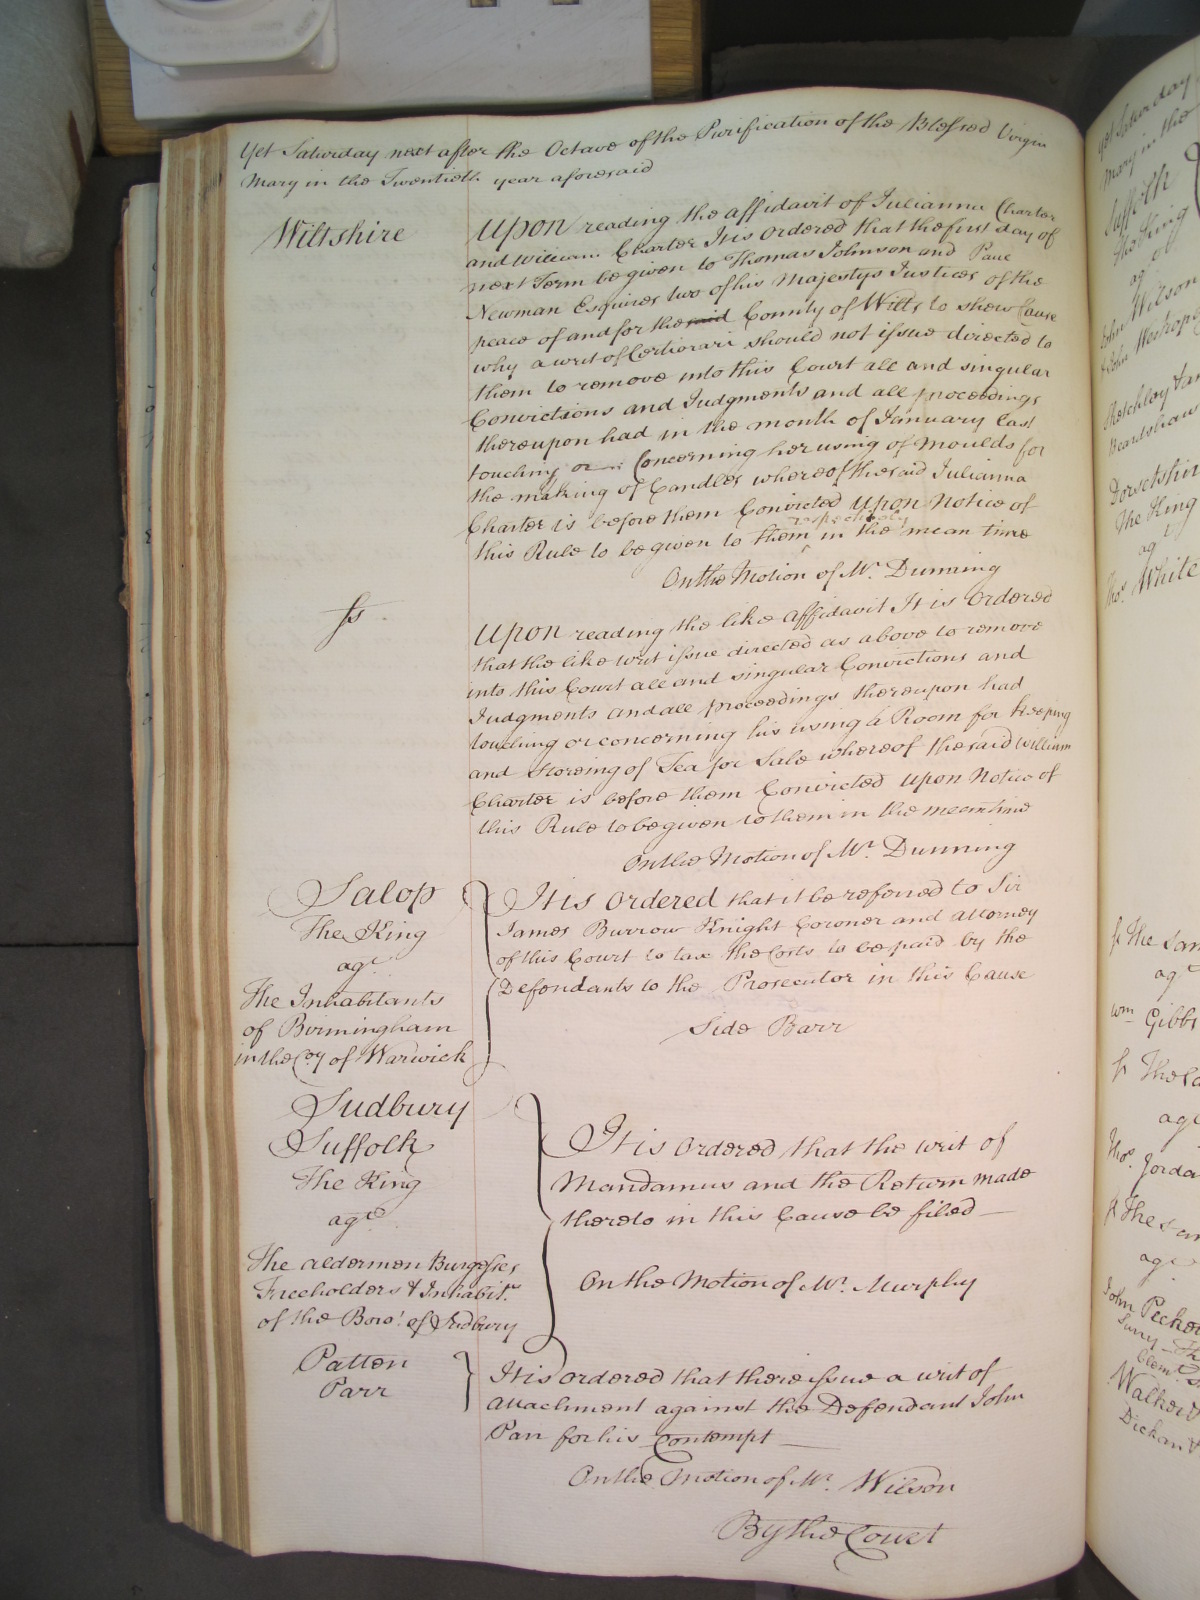 Yet Saturday next after the Octave of the Purification of the Blessed Virgin
Mary in the Twentieth year aforesaid
Wiltshire
Upon reading the affidavit of Julianna Charter
and William Charter It is Ordered that the first day of
next Term be given to Thomas Johnson and Paul
Newman Esquires two of his Majestys Justices of the
peace of and for the said County of Wilts to shew Cause
why a writ of Certiorari should not issue directed to
them to remove into this Court all and singular
Convictions and Judgments and all proceedings
thereupon had in the month of January last
touching or Concerning her using of Moulds for
the making of Candles whereof the said Julianna
Charter is before them Convicted Upon Notice of
this Rule to be given to them respectively in the mean time
On the Motion of Mr. Dunning
ss
Upon reading the like affidavit It is Ordered
that the like writ issue directed as above to remove
into this Court all and singular Convictions and
Judgments and all proceedings thereupon had
touching or concerning his using a Room for keeping
and storeing of Tea for Sale whereof the said William
Charter is before them Convicted Upon Notice of
this Rule to be given to them in the mean time
On the Motion of Mr. Dunning
Salop
The King
agt
The Inhabitants
of Birmingham
in the Coy of Warwick
It is Ordered that it be referred to Sir
James Burrow Knight Coroner and attorney
of this Court to tax the Costs to be paid by the
Defendants to the Prosecutor in this Cause
Side Barr
Sudbury
Suffolk
The King
agt
The aldermen Burgesses
Freeholders & Inhabits.
of the Boro' of Sudbury
It is Ordered that the writ of
Mandamus and the Return made
thereto in this Cause be filed
On the Motion of Mr. Murphy
Patten
Parr
It is Ordered that there issue a writ of
attachment against the Defendant John
Parr for his Contempt
On the Motion of Mr. Wilson
By the Court
yet Saturday
Mary in the
Suffolk
agt
John Wilson
Dorsetshire
The King
agt
Thos. White
agt
Wm Gibbs
agt
Thos. Jorda
agt